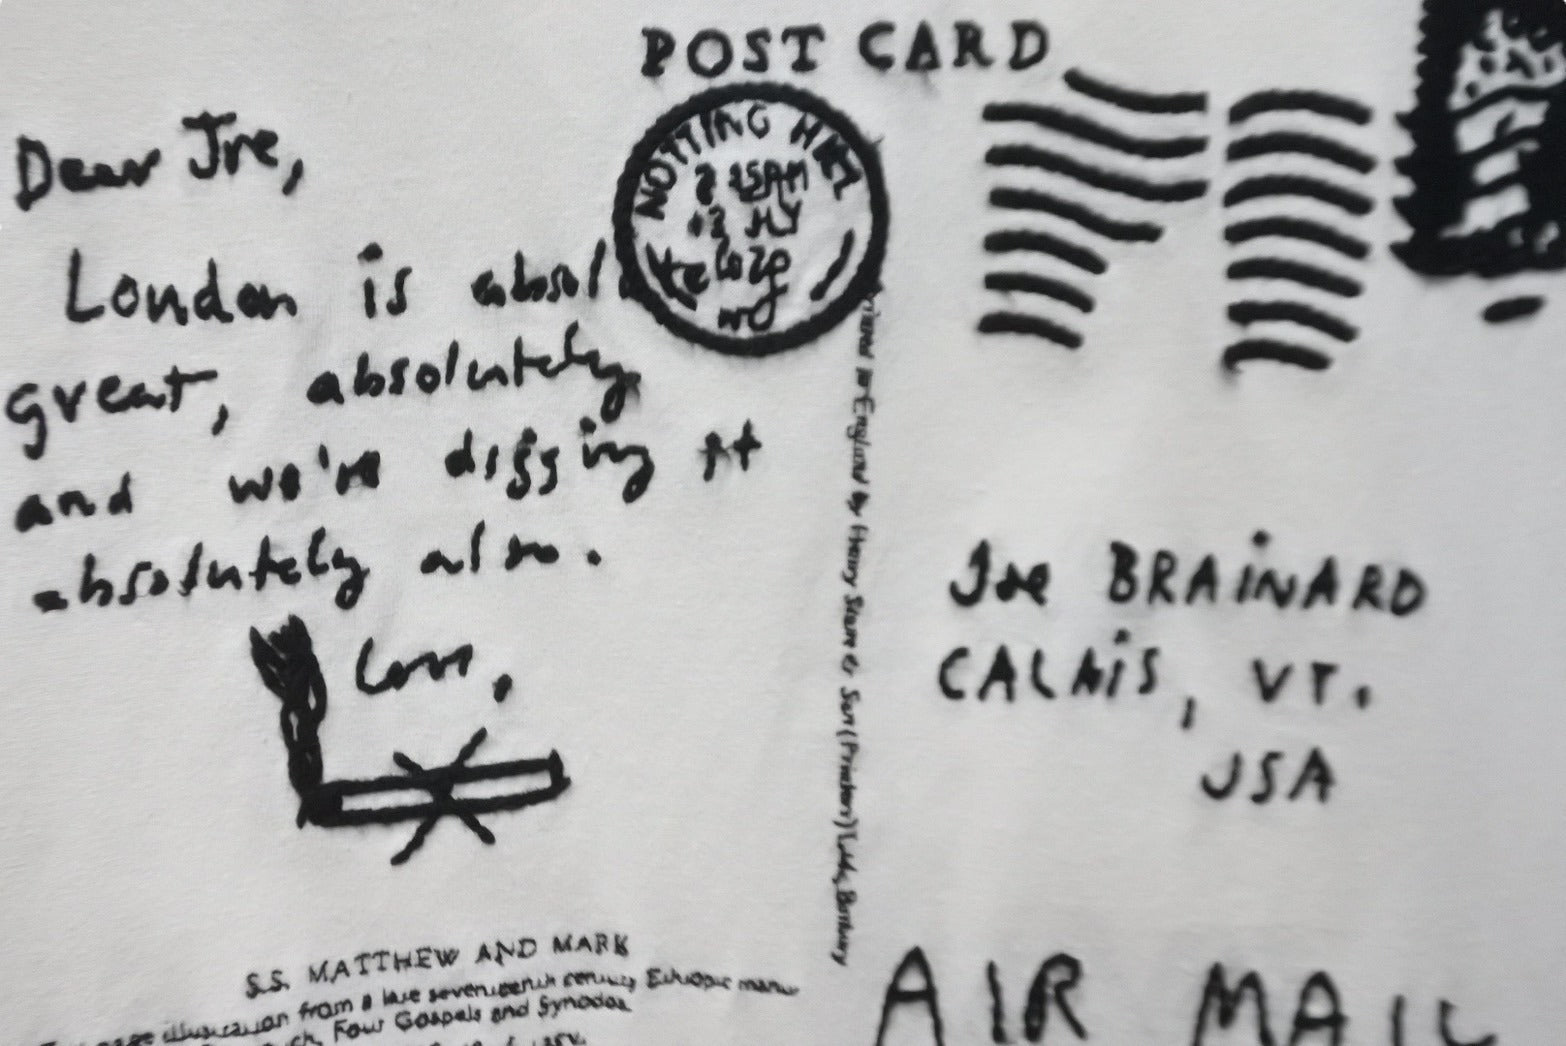 POST CARD
Dear Joe,
London is absol
great, absolutely
and we're digging it
absolutely also.
Love,
NOTTING HILL
Printed in England by Henry Stone & Son (Printers) Ltd., Banbury
Joe BRAiNARD
CALAiS, VT.
USA
S.S. MATTHEW AND MARK
illustration from a late seventeenth century Ethiopic manu
Four Gospels and Synodos
AIR MAIL